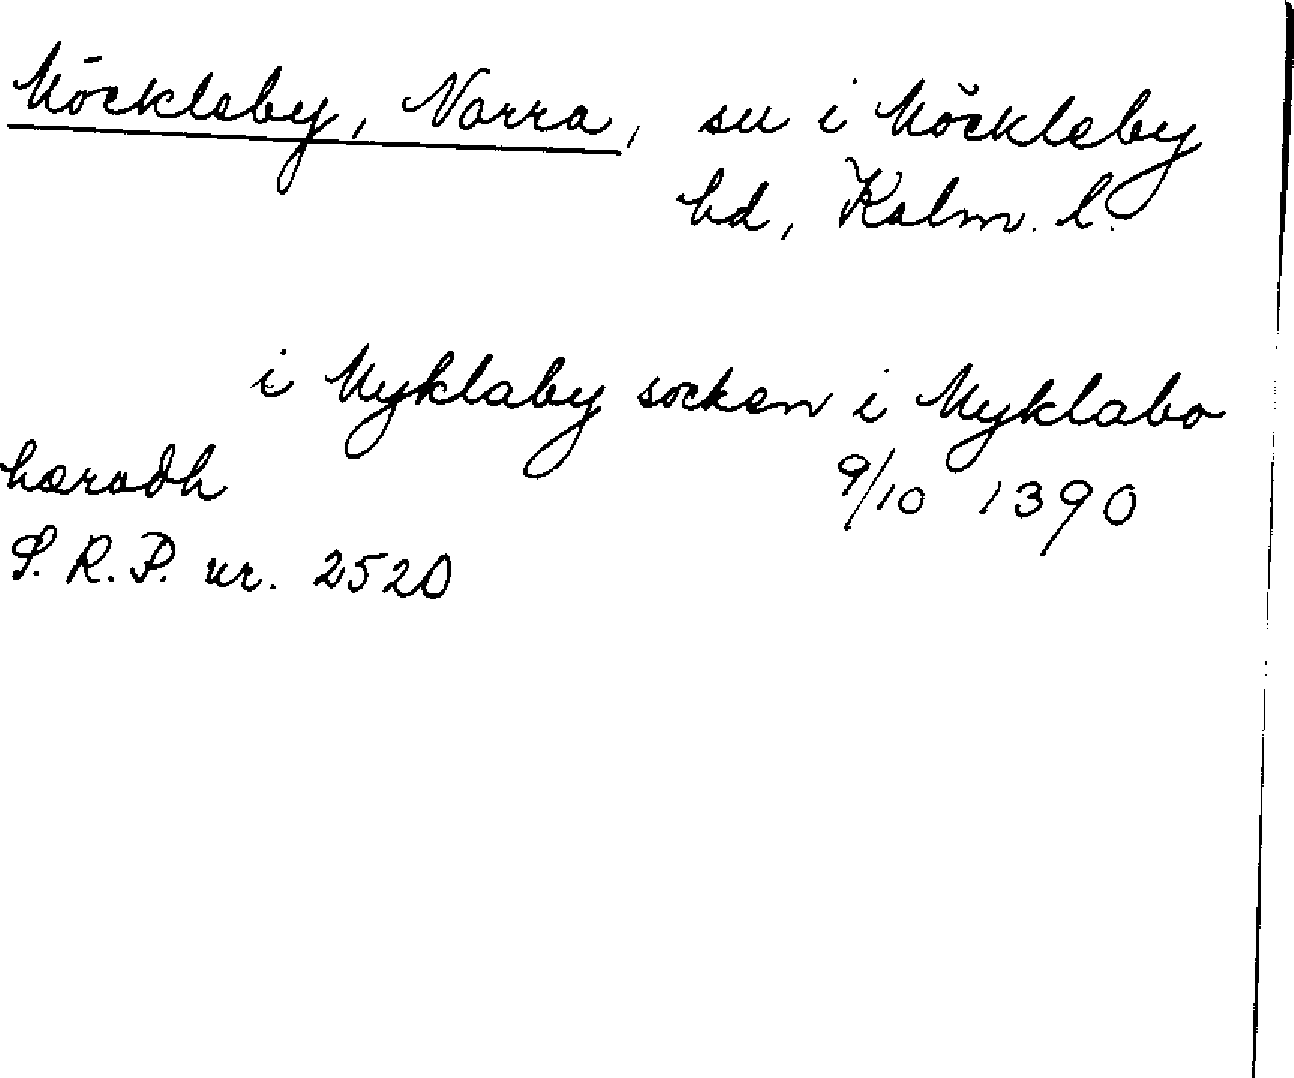 Möckleby, Norra, sn i Möckleby
hd, Kalm. l.
i Myklaby socken i Myklabo
hæradh 9/10 1390
S.R.P. nr. 2520